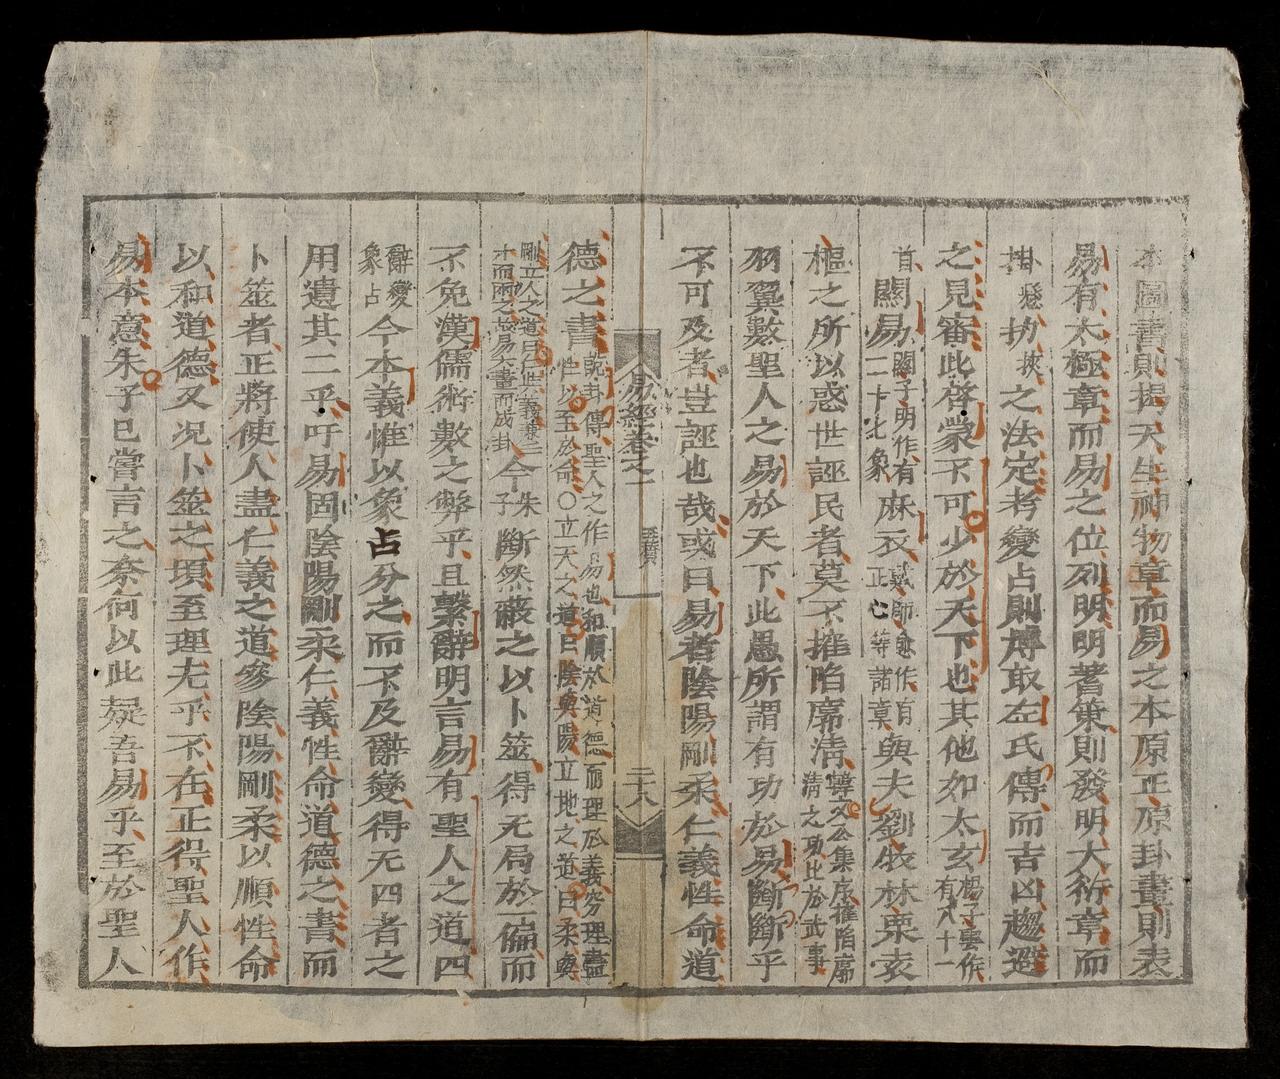 本圖書則揭天生神物章而易之本原正原卦畫則表
易有太極章而易之位列明明蓍策則發明大衍章而
掛懸扐挾之法定考變占則博取左氏傳而吉凶趨避
之見審此啓蒙不可少於天下也其他如太玄楊子雲作有八十一
首關易關子明作有二十七象麻衣戴師愈作有正心等諸章與夫劉牧林栗袁
樞之所以惑世誣民者莫不摧陷廓清韓文公集序摧陷廓清之功比於武事
羽翼數聖人之易於天下此愚所謂有功於易斷斷乎
不可及者豈誣也哉或曰易者陰陽剛柔仁義性命道
易經卷之一
二十八
德之書說卦傳聖人之作易也和順於道德而理於義窮理盡性以至於命○立天之道曰陰與陽立地之道曰柔與
剛立人之道曰仁與義兼三才而兩之故易六畫而成卦今朱子斷然蔽之以卜筮得无局於一偏而
不免漢儒術數之弊乎且繫辭明言易有聖人之道四
辭變象占今本義惟以象占分之而不及辭變得无四者之
用遺其二乎吁易固陰陽剛柔仁義性命道德之書而
卜筮者正將使人盡仁義之道參陰陽剛柔以順性命
以和道德又况卜筮之頃至理无乎不在正得聖人作
易本意朱子已嘗言之奈何以此疑吾易乎至於聖人